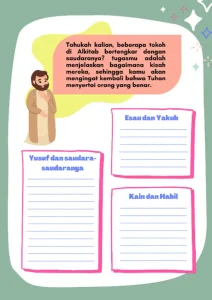 Tahukah kalian, beberapa tokoh
di Alkitab bertengkar dengan
saudaranya? tugasmu adalah
menjelaskan bagaimana kisah
mereka, sehingga kamu akan
mengingat kembali bahwa Tuhan
menyertai orang yang benar.
Esau dan Yakub
Yusuf dan saudara-
saudaranya
Kain dan Habil